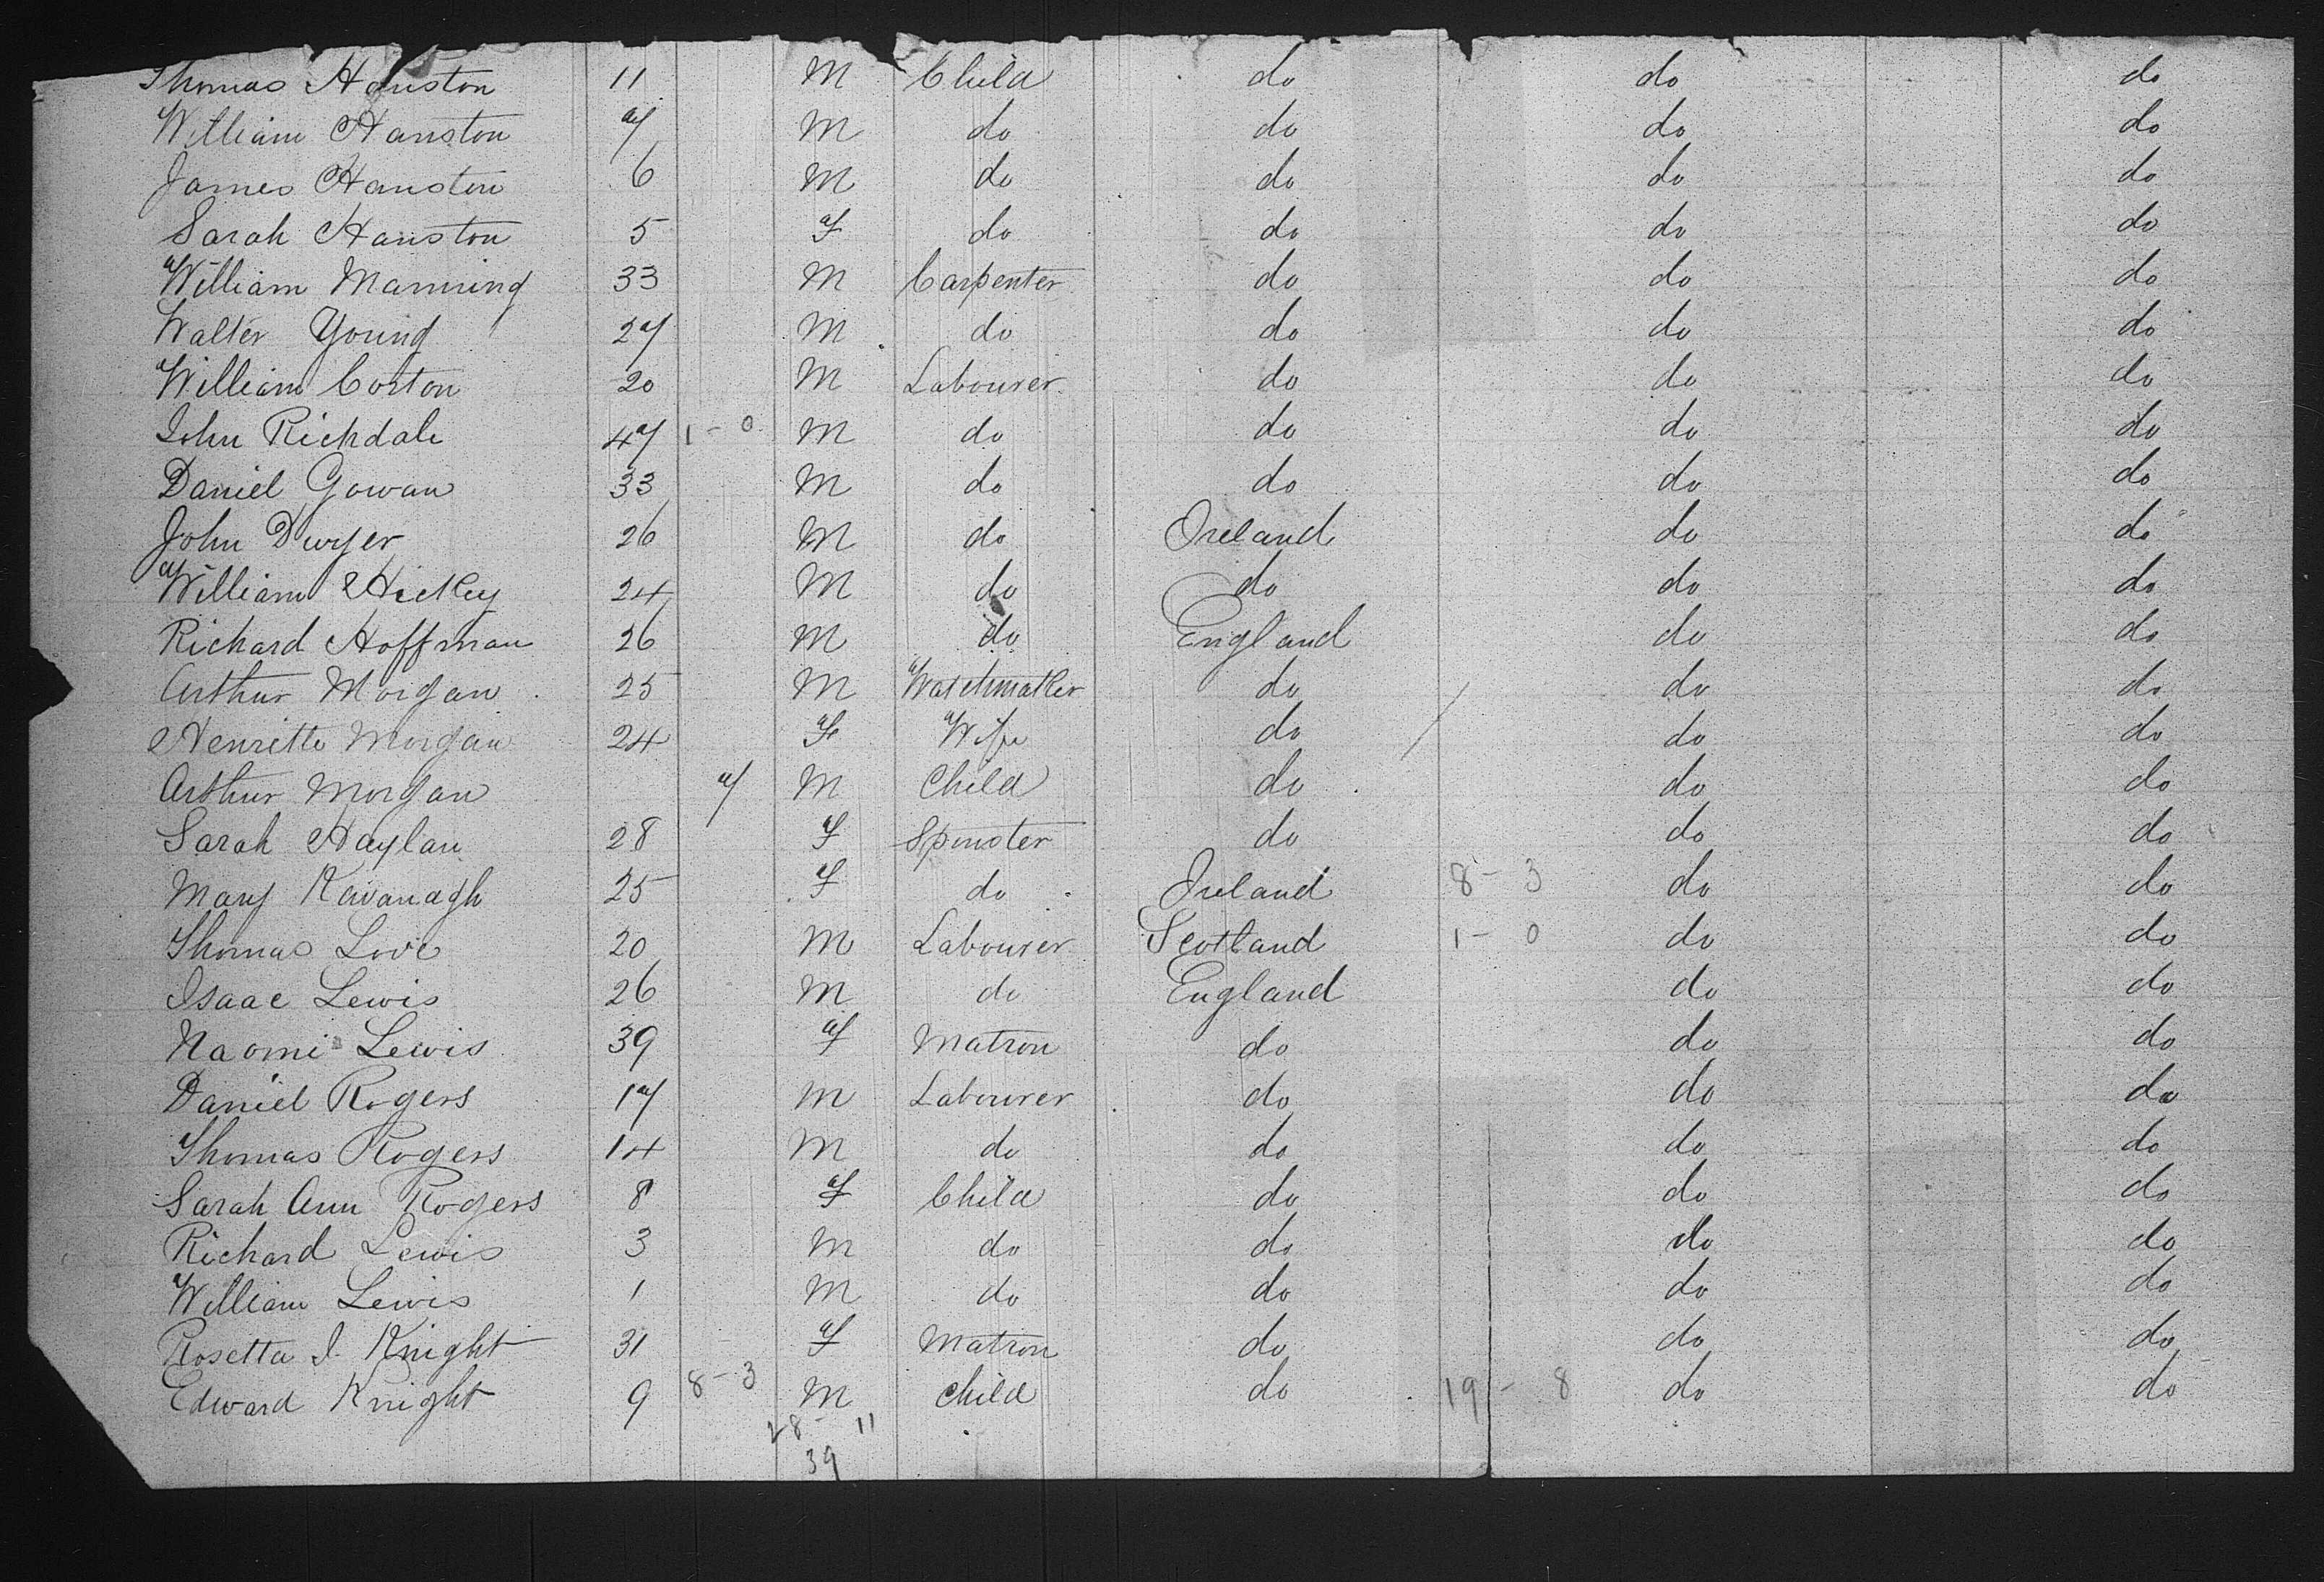 Thomas Hanston 11 M Child do do do
William Hanston 7 M do do do do
James Hanston 6 M do do do do
Sarah Hanston 5 F do do do do
William Manning 33 M Carpenter do do do
Walter Young 27 M do do do do
William Corton 20 M Labourer do do do
John Richdale 47 1 - 0 M do do do do
Daniel Gowan 33 M do do do do
John Dwyer 26 M do Ireland do do
William Hickey 24 M do do do do
Richard Hoffman 26 M do England do do
Arthur Morgan 25 M Watchmaker do do do
Henritte Morgan 24 F Wife do / do do
Arthur Morgan 7 M Child do do do
Sarah Haylan 28 F Spinster do do do
Mary Kavanagh 25 F do Ireland 8 - 3 do do
Thomas Love 20 M Labourer Scotland 1 - 0 do do
Isaac Lewis 26 M do England do do
Naomi Lewis 39 F Matron do do do
Daniel Rogers 17 M Labourer do do do
Thomas Rogers 14 M do do do do
Sarah Ann Rogers 8 F Child do do do
Richard Lewis 3 M do do do do
William Lewis 1 M do do do do
Rosetta J. Knight 31 F Matron do do do
Edward Knight 9 8 - 3 M Child do 19 - 8 do do
28 - 11
39